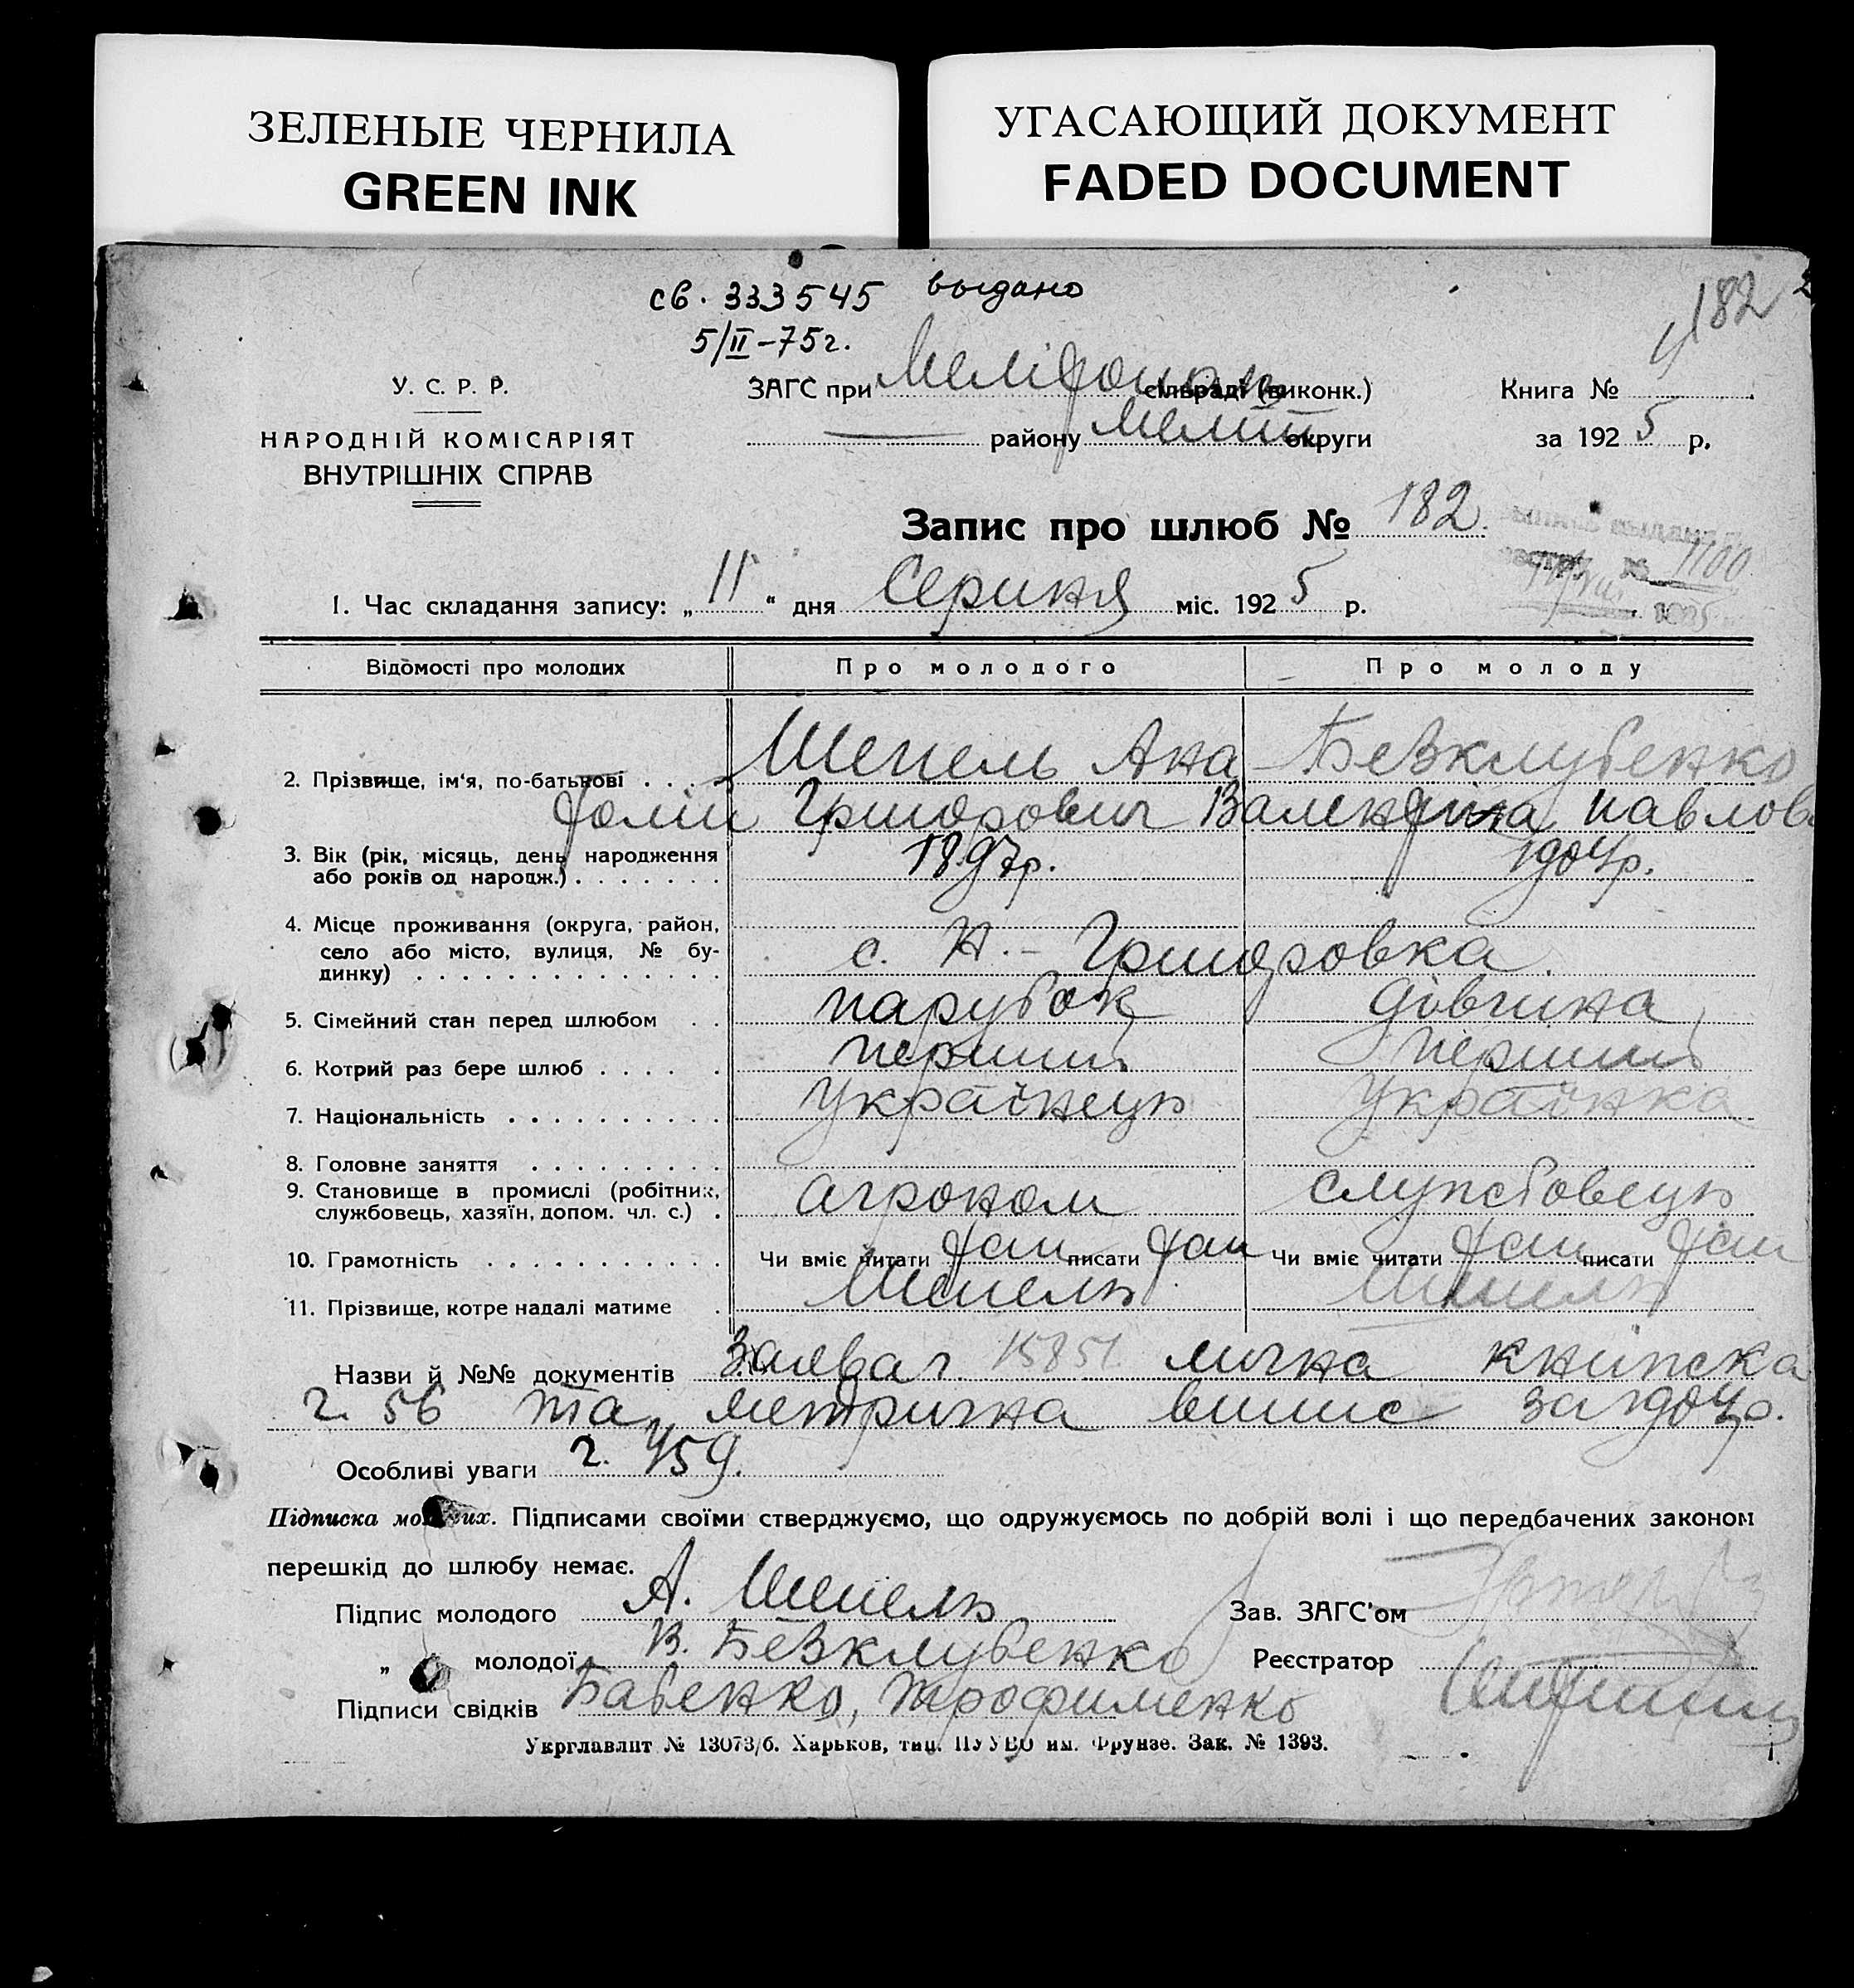 ЗЕЛЕНЫЕ ЧЕРНИЛА
GREEN INK
УГАСАЮЩИЙ ДОКУМЕНТ
FADED DOCUMENT
св. 333545 выдано
5/II-75г.
182
У. С. Р. Р.
НАРОДНІЙ КОМІСАРІЯТ
ВНУТРІШНІХ СПРАВ
ЗАГС при сільраді (виконк.)
району Меліт округи
Книга №
за 1925 р.
Запис про шлюб № 182.
1100
1. Час складання запису: „11“ дня Серпня міс. 1925 р.
Відомості про молодих Про молодого Про молоду
2. Прізвище, ім‘я, по-батькові . . . Шепель Ана Безклубенко
толій Григорович Валентина Павлов
3. Вік (рік, місяць, день народження або років од народж.) . . . . . . . 1897р. 1904р.
4. Місце проживання (округа, район, село або місто, вулиця, № будинку) . . . . . . . . . . . . . с. Н.-Григоровка.
5. Сімейний стан перед шлюбом . . парубок дівчина
6. Котрий раз бере шлюб . . . . . перший перший
7. Національність . . . . . . . . . . українець українка
8. Головне заняття . . . . . . . . .
9. Становище в промислі (робітник, службовець, хазяїн, допом. чл. с.) . агроном службовець
10. Грамотність . . . . . . . . . . . Чи вміє читати так писати так Чи вміє читати так писати так
11. Прізвище, котре надалі матиме . Шепель Шепель
Назви й №№ документів Заява ч. 15851 лична книжка
ч. 56 та метрична випис за 1904р.
Особливі уваги ч. 459.
Підписка молодих. Підписами своїми стверджуємо, що одружуємось по добрій волі і що передбачених законом
перешкід до шлюбу немає.
Підпис молодого А. Шепель Зав. ЗАГС'ом
„ молодої В. Безклубенко Реєстратор
Підписи свідків Бабенко, Трофименко
Укрглавлит № 13073/б. Харьков, тип. ПУУВО им. Фрунзе. Зак. № 1393.